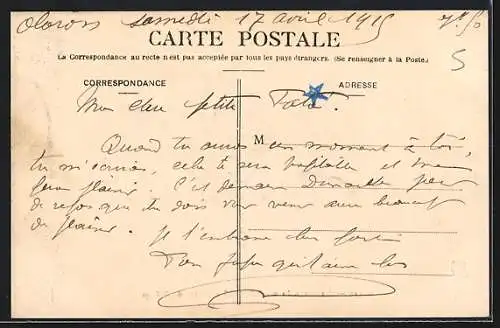 Oloron Samedi 17 avril 1915
CARTE POSTALE
La Correspondance au recto n'est pas acceptée par tous les pays étrangers. (Se renseigner à la Poste.)
5
CORRESPONDANCE
ADRESSE
Mon cher petit
M
Quand tu auras un moment à toi,
tu m'écriras, cela te sera et me
fera plaisir. C'est demain Dimanche
de repos que tu dois voir venir avec beaucoup
de plaisir. Je t'embrasse
Ton qui t'aime